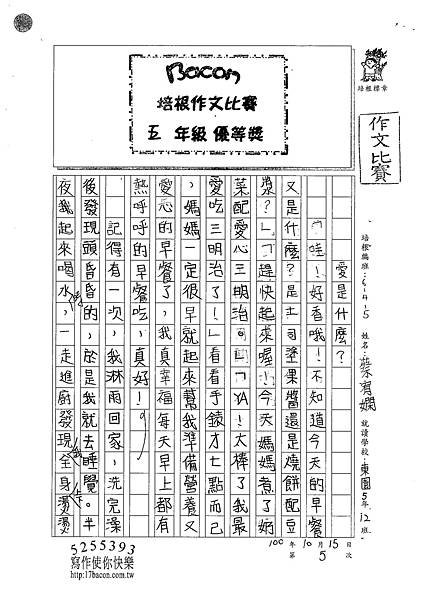 Bacon
培根作文比賽
五 年級 優等獎
培根標章
作文比賽
培根編班:
姓名
就讀學校:東園5年12班
100年10月15日
第5次
愛是什麼?
「哇!好香哦!不知道今天的早餐
又是什麼?是土司塗果醬還是燒餅配豆
漿?」「趕快起來喔!今天媽媽煮了
菜配愛心三明治
YA!太棒了我最
愛吃三明治了!」看看手錶才七點而已
,媽媽一定很早就起來幫我準備營養又
愛心的早餐了,我真幸福每天早上都有
熱呼呼的早餐吃,真好!
記得有一次,我淋雨回家,洗完澡
後發現頭昏昏的,於是我就去睡覺。半
夜我起來喝水,一走進廚發現全身燙燙
5255393
寫作使你快樂
http://17bacon.com.tw